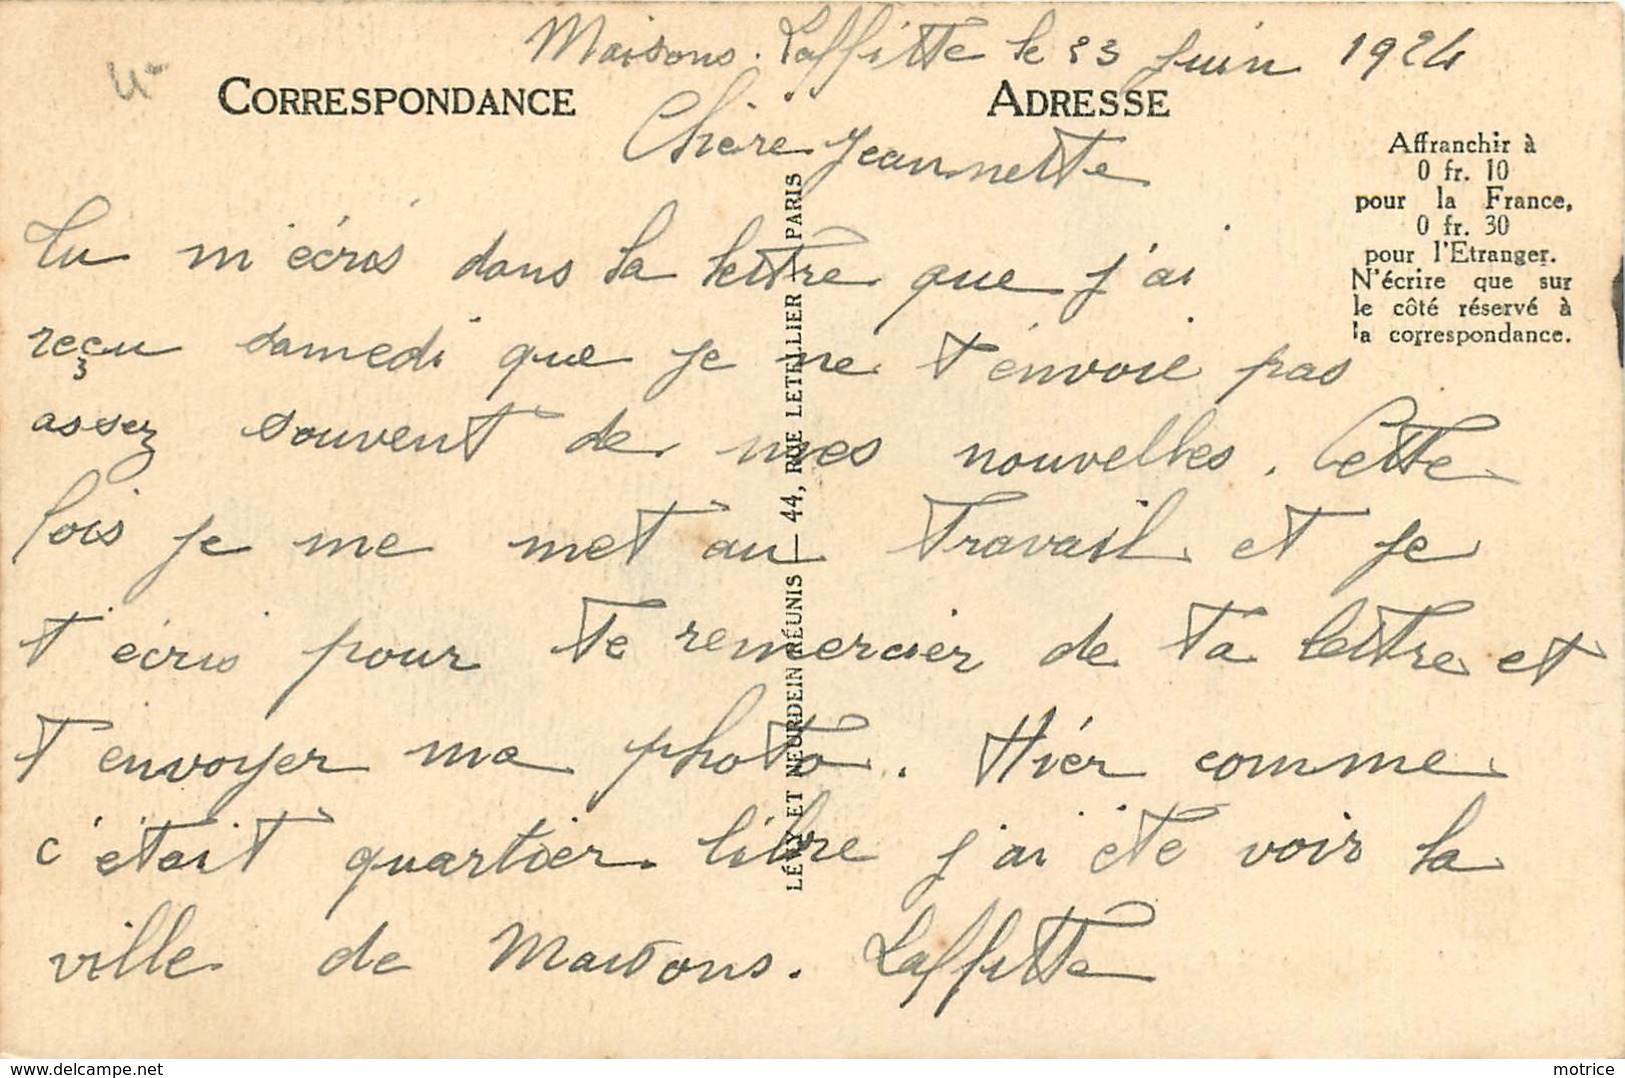 Maisons. Laffitte le 23 Juin 1924
4-
CORRESPONDANCE
ADRESSE
Chère Jeannette
Affranchir à
0 fr. 10
pour la France,
0 fr. 30
pour l'Etranger.
N'écrire que sur
le côté réservé à
la correspondance.
Tu m'écris dans ta lettre que j'ai
reçu samedi que je ne t'envoie pas
assez souvent de mes nouvelles. Cette
fois je me met au travail et je
t'écris pour te remercier de ta lettre et
t'envoyer ma photo. Hier comme
c'était quartier. libre j'ai été voir la
ville de Maisons. Laffitte
LÉVY ET NEURDEIN RÉUNIS — 44, RUE LETELLIER — PARIS
delcampe.net
motrice